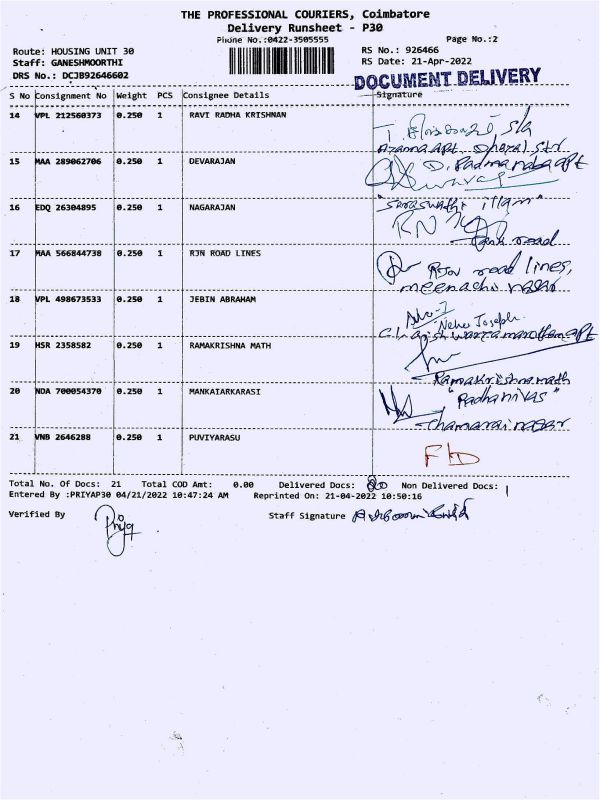 THE PROFESSIONAL COURIERS, Coimbatore
Delivery Runsheet - P30
Phone No.:0422-3505555
Page No.:2
Route: HOUSING UNIT 30
RS No.: 926466
Staff: GANESHMOORTHI
RS Date: 21-Apr-2022
DRS No.: DCJB92646602
DOCUMENT DELIVERY
S No Consignment No Weight PCS Consignee Details Signature
14 VPL 212560373 0.250 1 RAVI RADHA KRISHNAN
15 MAA 289062706 0.250 1 DEVARAJAN
D. Padmanaba apt
16 EDQ 26304895 0.250 1 NAGARAJAN
"Saraswathi illam"
RN
road
17 MAA 566844738 0.250 1 RJN ROAD LINES
RJN road lines,
meenachi nagar
18 VPL 498673533 0.250 1 JEBIN ABRAHAM
Neha Joseph
19 HSR 2358582 0.250 1 RAMAKRISHNA MATH
Ramakrishna math
20 NDA 700054370 0.250 1 MANKAIARKARASI
"Padhanivas"
21 VNB 2646288 0.250 1 PUVIYARASU
F/D
Total No. Of Docs: 21 Total COD Amt: 0.00 Delivered Docs: 20 Non Delivered Docs: 1
Entered By :PRIYAP30 04/21/2022 10:47:24 AM Reprinted On: 21-04-2022 10:50:16
Verified By Priya Staff Signature